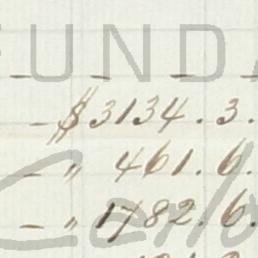 FUNDA
– $ 3134. 3.
– " 461. 6.
– " 1782. 6.